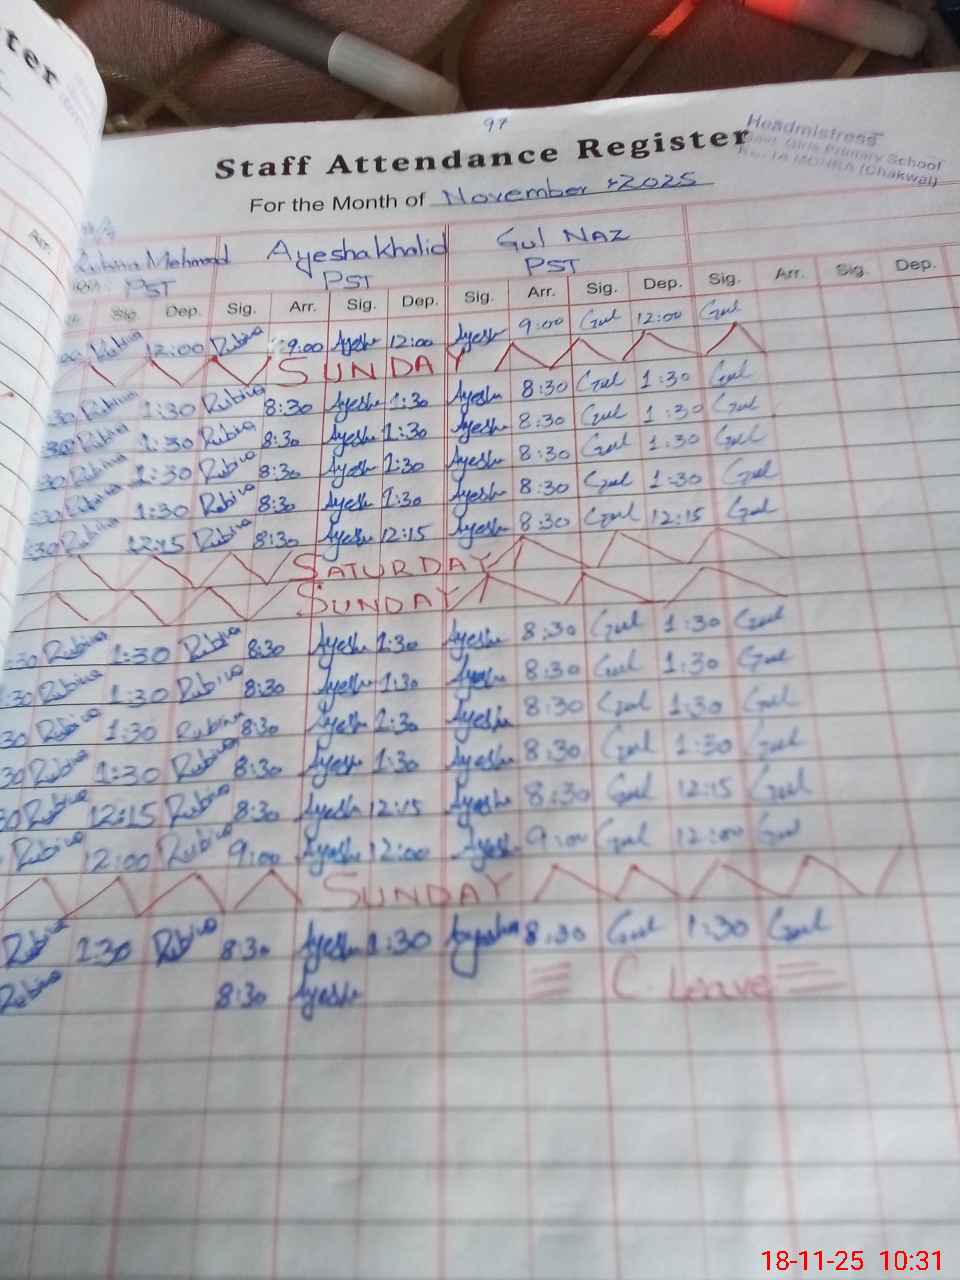 ter
97
Staff Attendance Register
Headmistress
Govt. Girls Primary School
MOHRA (Chakwal)
For the Month of November 2025
Mehmood Ayesha Khalid Gul NAZ
PST PST PST
Arr.
Sig. Dep. Sig. Arr. Sig. Dep. Sig. Arr. Sig. Dep. Sig. Arr. Sig. Dep.
00 Rubina 12:00 Rubina 9:00 Ayesha 12:00 Ayesha 9:00 Gul 12:00 Gul
SUNDAY
:30 Rubina 1:30 Rubina 8:30 Ayesha 1:30 Ayesha 8:30 Gul 1:30 Gul
:30 Rubina 1:30 Rubina 8:30 Ayesha 1:30 Ayesha 8:30 Gul 1:30 Gul
:30 Rubina 1:30 Rubina 8:30 Ayesha 1:30 Ayesha 8:30 Gul 1:30 Gul
:30 Rubina 1:30 Rubina 8:30 Ayesha 1:30 Ayesha 8:30 Gul 1:30 Gul
:30 Rubina 12:15 Rubina 8:30 Ayesha 12:15 Ayesha 8:30 Gul 12:15 Gul
SATURDAY
SUNDAY
:30 Rubina 1:30 Rubina 8:30 Ayesha 1:30 Ayesha 8:30 Gul 1:30 Gul
:30 Rubina 1:30 Rubina 8:30 Ayesha 1:30 Ayesha 8:30 Gul 1:30 Gul
30 Rubina 1:30 Rubina 8:30 Ayesha 1:30 Ayesha 8:30 Gul 1:30 Gul
30 Rubina 1:30 Rubina 8:30 Ayesha 1:30 Ayesha 8:30 Gul 1:30 Gul
30 Rubina 12:15 Rubina 8:30 Ayesha 12:15 Ayesha 8:30 Gul 12:15 Gul
Rubina 12:00 Rubina 9:00 Ayesha 12:00 Ayesha 9:00 Gul 12:00 Gul
SUNDAY
Rubina 1:30 Rubina 8:30 Ayesha 1:30 Ayesha 8:30 Gul 1:30 Gul
Rubina 8:30 Ayesha C. Leave
18-11-25 10:31